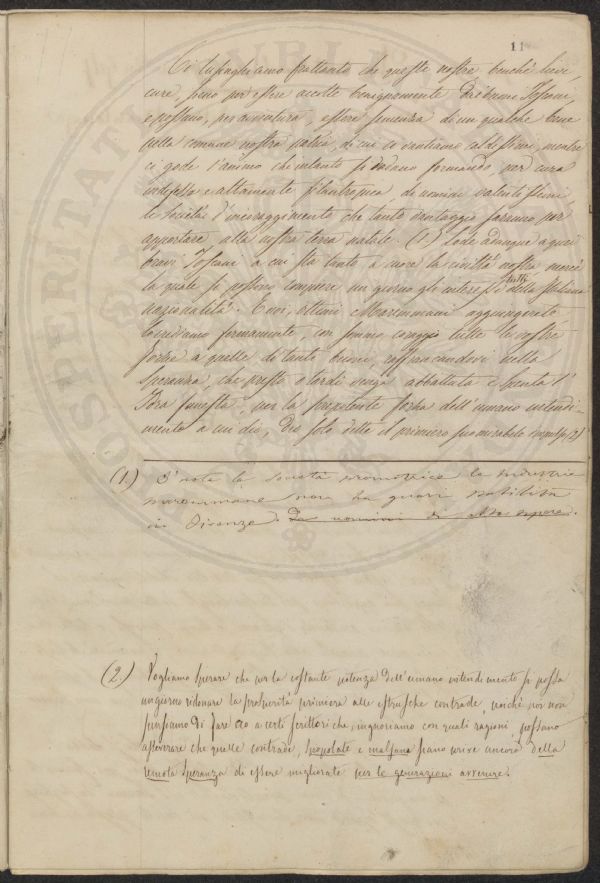 11
Ci lusinghiamo frattanto che queste nostre benchè lievi
cure, sieno per essere accolte benignamente dai buoni Toscani,
e possano, per avventura, essere semenza di un qualche bene
nella comune nostra patria, di cui ci vantiamo caldissimi, mentre
ci gode l'animo che intanto si vadano formando, per cura
indefessa e altamente filantropica di uomini valentissimi
le Società d'incoraggimento che tanto vantaggio faranno per
apportare alla nostra terra natale. (1) Lode adunque a quei
bravi Toscani a cui sta tanto a cuore la civiltà nostra mercè
la quale si possono compiere un giorno gli interessi tutti della Italiana
nazionalità. E voi, ottimi Maremmani aggiungerete
lo crediamo fermamente, con sommo coraggio tutte le vostre
forze a quelle di tanti buoni, rafforzandovi nella
speranza, che presto o tardi venga abbattuta e spenta l'
Idra funesta, per la prepotente forza dell'umano intendi-
mento a cui dio, Dio solo dette il primiero suo mirabile impulso (2)
(1) È nota la Società promotrice le industrie
maremmane non ha guari stabilita
in Firenze. Da uomini di alto sapere.
(2) Vogliamo sperare che con la costante potenza dell'umano intendimento si possa
un giorno ridonare la prosperità primiera alle etrusche contrade, poichè noi non
pensiamo di fare eco a certi scrittori che, ignoriamo con quali ragioni, possano
asseverare che quelle contrade, spopolate e malsane siano prive ancora della
remota speranza di essere migliorate per le generazioni avvenire.